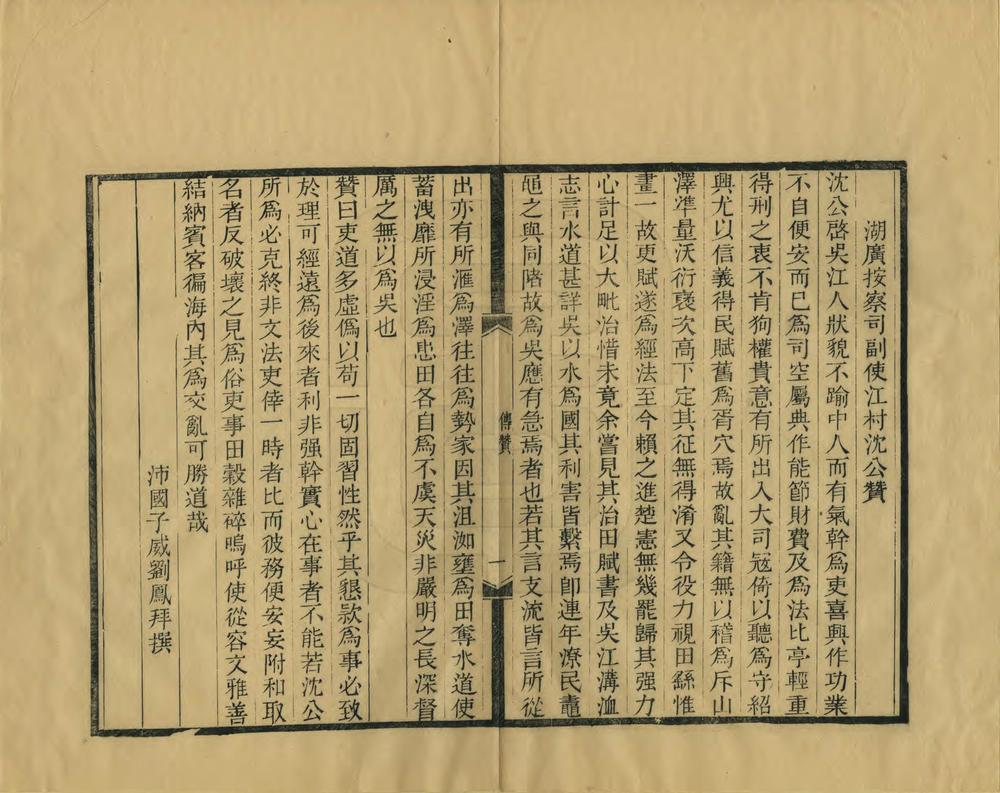 湖廣按察司副使江村沈公贊
沈公啓吳江人狀貌不踰中人而有氣幹爲吏喜興作功業
不自便安而已爲司空屬典作能節財費及爲法比亭輕重
得刑之衷不肯狥權貴意有所出入大司冦倚以聽爲守紹
興尤以信義得民賦舊爲胥穴焉故亂其籍無以稽爲斥山
澤準量沃衍裒次高下定其征無得淆又令役力視田繇惟
畫一故更賦遂爲經法至今賴之進楚憲無幾罷歸其强力
心計足以大毗治惜未竟余嘗見其治田賦書及吳江溝洫
志言水道甚詳吳以水爲國其利害皆繫焉卽連年潦民鼃
黽之與同陼故爲吳應有急焉者也若其言支流皆言所從
傳贊
一
出亦有所滙爲澤往往爲勢家因其沮洳壅爲田奪水道使
蓄洩靡所浸淫爲患田各自爲不虞天災非嚴明之長深督
厲之無以爲吳也
贊曰吏道多虛僞以苟一切固習性然乎其懇款爲事必致
於理可經遠爲後來者利非强幹實心在事者不能若沈公
所爲必克終非文法吏倖一時者比而彼務便安妄附和取
名者反破壞之見爲俗吏事田穀雜碎嗚呼使從容文雅善
結納賓客徧海內其爲交亂可勝道哉
沛國子威劉鳳拜撰